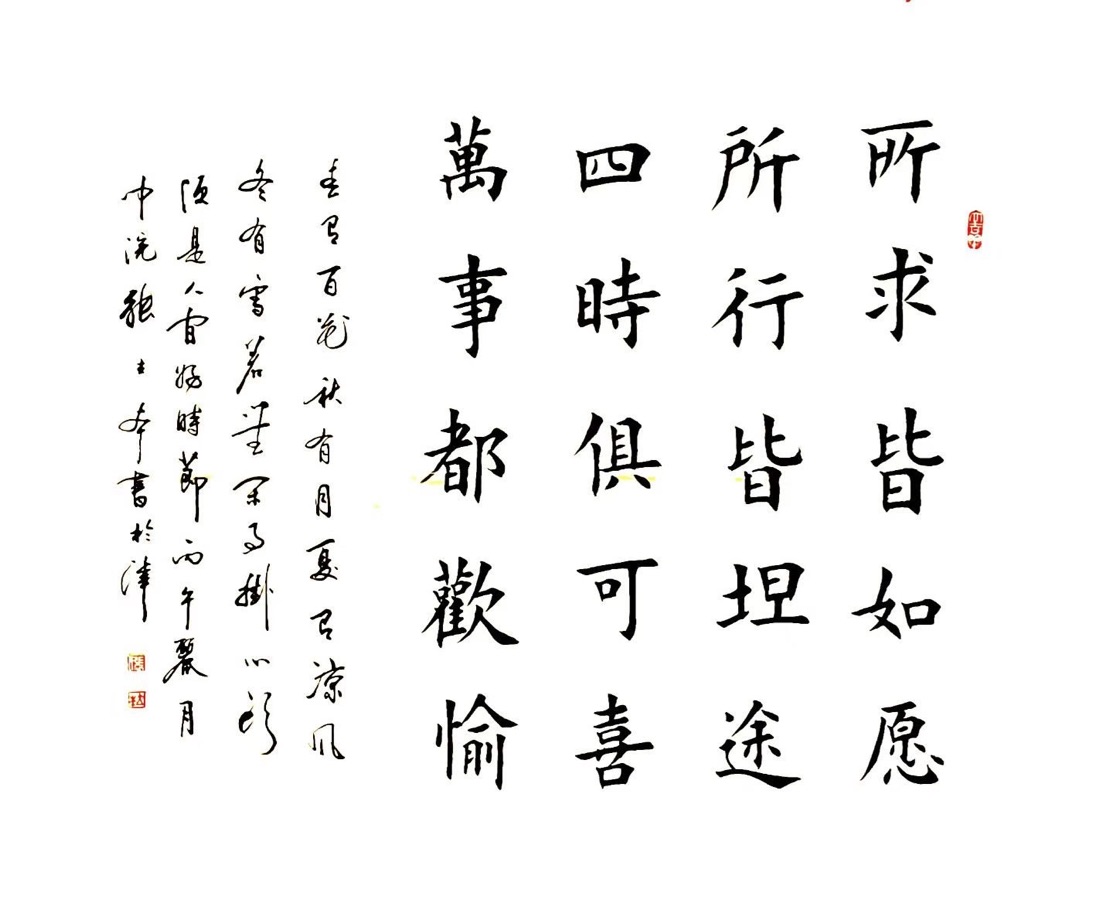 所求皆如愿
所行皆坦途
四時俱可喜
萬事都歡愉
春有百花秋有月夏有凉风
冬有雪若無闲事掛心頭
是人间好時節丙午麗月
中浣士本書於津